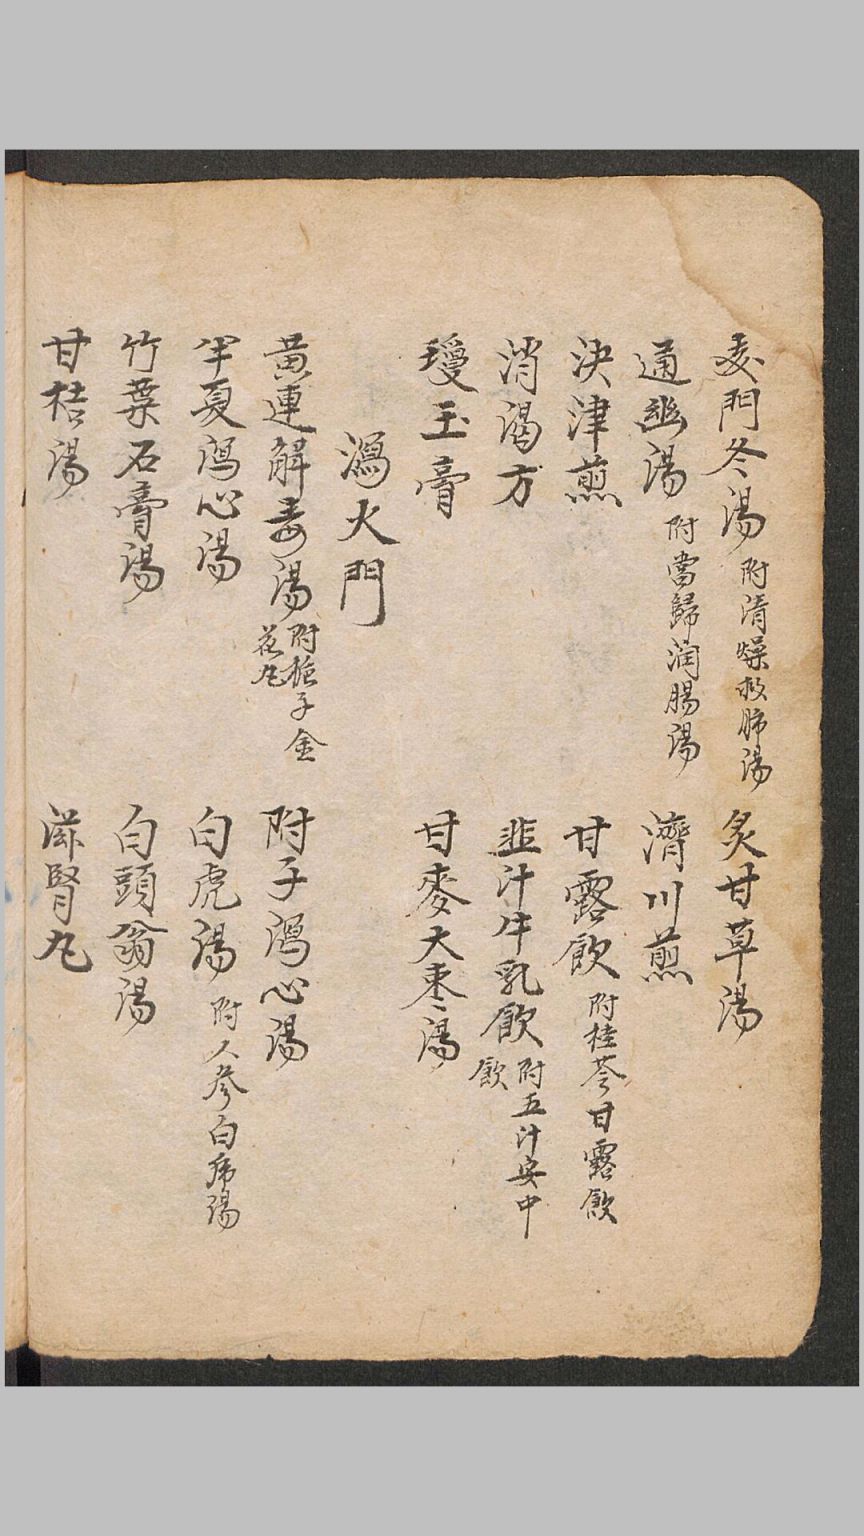 麦門冬湯 附清燥救肺湯 炙甘草湯
通幽湯 附當歸潤腸湯 濟川煎
決津煎 甘露飲 附桂苓甘露飲
消渴方 韭汁牛乳飲 附五汁安中飲
瓊玉膏 甘麥大棗湯
瀉火門
黃連解毒湯 附梔子金花丸 附子瀉心湯
半夏瀉心湯 白虎湯 附人參白虎湯
竹葉石膏湯 白頭翁湯
甘桔湯 滋腎丸